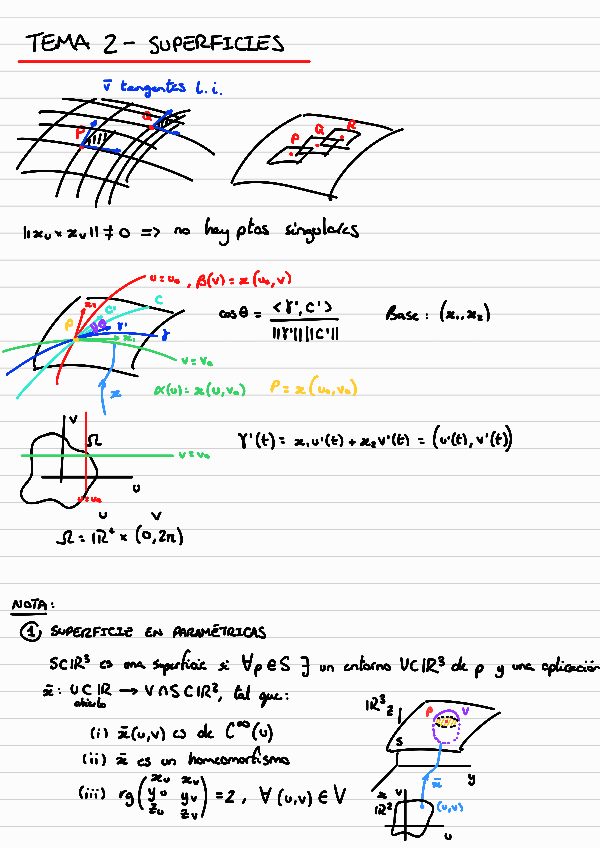 TEMA 2 - SUPERFICIES
v̄ tangentes l.i.
P Q P Q R
||xᵤ × xᵥ|| ≠ 0 => no hay ptos singulares
u=u₀, β(v) = x(u₀,v)
C
P x₂ C' θ γ' x₁ γ
cosθ = <γ', C'> / ||γ'|| ||C'||
Base: (x₁, x₂)
v=v₀
x
α(u) = x(u,v₀)
P = x(u₀,v₀)
V Ω
γ'(t) = x₁u'(t) + x₂v'(t) = (u'(t), v'(t))
v=v₀
u
u=u₀
u v
Ω = IR⁺ × (0,2π)
NOTA:
① SUPERFICIE EN PARAMÉTRICAS
S⊂IR³ es una superficie si ∀p∈S ∃ un entorno V⊂IR³ de p y una aplicación
x̄: U⊂IR → V∩S⊂IR², tal que:
abierto
(i) x̄(u,v) es de C^∞(u)
(ii) x̄ es un homeomorfismo
(iii) rg(xᵤ xᵥ
yᵤ yᵥ
zᵤ zᵥ) = 2, ∀ (u,v) ∈ V
IR³ z P V
S
y
x x̄
IR² v (u,v)
u